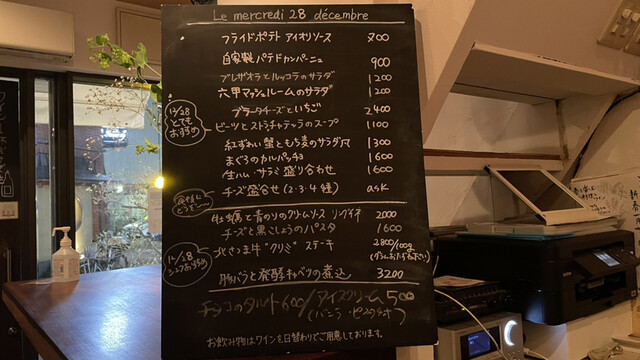 Le mercredi 28 décembre
フライドポテト アイオリソース 700
自家製パテドカンパーニュ 900
ブレザオラとルッコラのサラダ 1200
六甲マッシュルームのサラダ 1200
ブラータチーズといちご 2400
12/28 とても おすすめ
ビーツとストラチャテッラのスープ 1100
紅ずわい蟹ともち麦のサラダ 1300
まぐろのカルパッチョ 1600
生ハム・サラミ盛り合わせ 1600
チーズ盛合せ (2・3・4種) ask
牡蠣と青のりのクリームソース リングイネ 2000
チーズと黒こしょうのパスタ 1600
12/28 シェフおすすめ
北さつま牛 "クリミ" ステーキ 2800/100g
豚バラと発酵キャベツの煮込 3200
チョコのタルト 600 / アイスクリーム 500
(バニラ・ピスタチオ)
お飲み物はワインを日替わりでご用意しております。